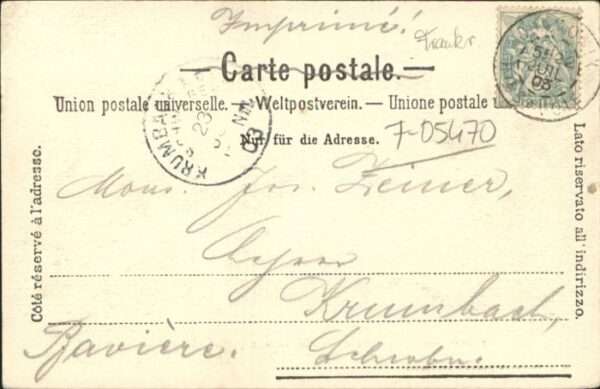 Imprimé!
— Carte postale. —
Union postale universelle. — Weltpostverein. — Unione postale
Nur für die Adresse.
7-05470
KRUMBA
23
03
03
Côté réservé à l'adresse.
Lato riservato all' indirizzo.
Mons. Jos. Zeiner,
Krumbach,
Bavière. Schwaben.